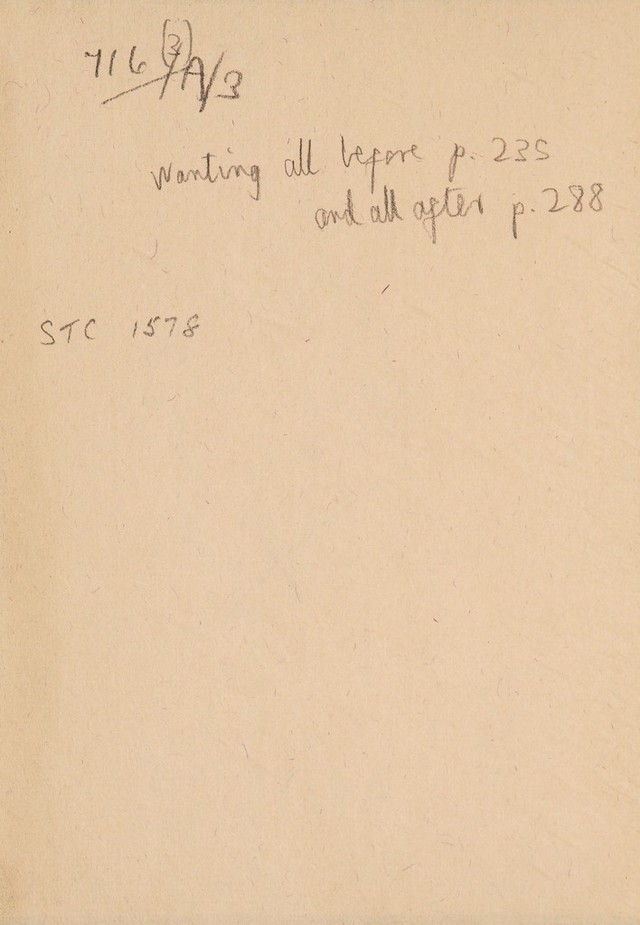 716 (3)/A/3
Wanting all before p. 235
and all after p. 288
STC 1578